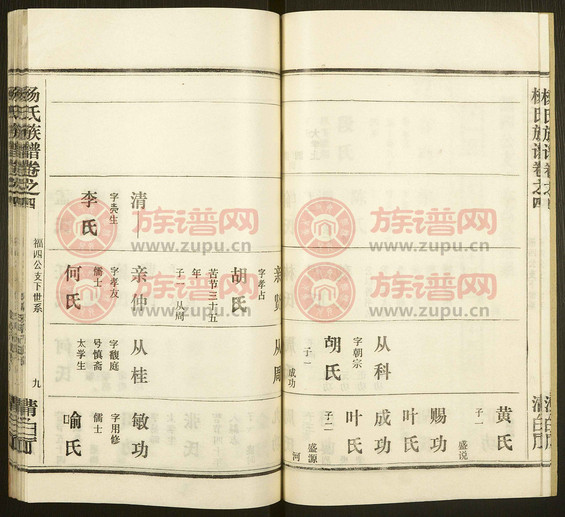 黄氏
子一
盛说
赐功
叶氏
从科
字朝宗
胡氏
子一
成功
成功
叶氏
子二
盛源
河
亲贤
字孝占
胡氏
苦节三十五
年
子一
从周
从周
清一
李氏
亲仲
字孝友
儒士
何氏
从桂
字馥庭
号慎斋
太学生
敏功
字用修
儒士
喻氏
杨氏族谱卷之四
福四公支下世系
九
杨氏族谱卷之四
族谱网
www.zupu.cn
族谱网
www.zupu.cn
族谱网
www.zupu.cn
族谱网
www.zupu.cn